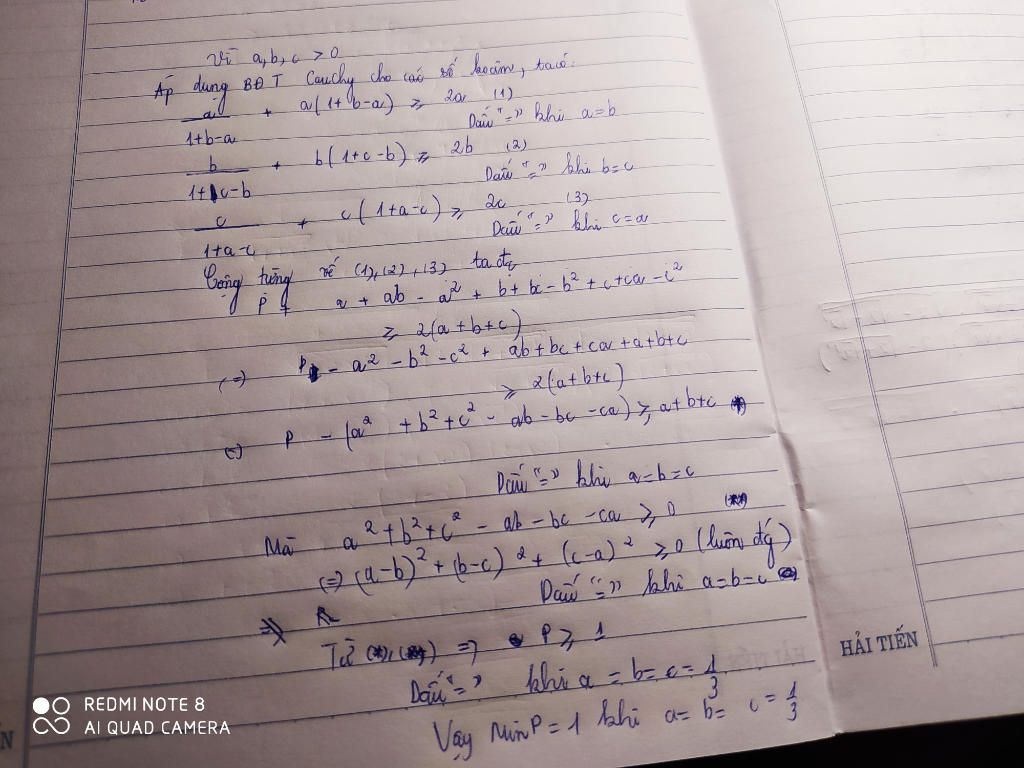 Vì a, b, c > 0
Áp dụng BĐT Cauchy cho các số ko âm, ta có:
a/(1+b-a) + a(1+b-a) ≥ 2a (1)
Dấu "=" khi a=b
b/(1+c-b) + b(1+c-b) ≥ 2b (2)
Dấu "=" khi b=c
c/(1+a-c) + c(1+a-c) ≥ 2c (3)
Dấu "=" khi c=a
Cộng từng vế (1), (2), (3) ta đc
P + a + ab - a² + b + bc - b² + c + ca - c²
≥ 2(a+b+c)
(=) P - a² - b² - c² + ab + bc + ca + a + b + c
≥ 2(a+b+c)
(=) P - (a² + b² + c² - ab - bc - ca) ≥ a+b+c (*)
Dấu "=" khi a=b=c
Mà a² + b² + c² - ab - bc - ca ≥ 0 (**)
(=) (a-b)² + (b-c)² + (c-a)² ≥ 0 (luôn đg)
Dấu "=" khi a=b=c
=>
Từ (*), (**) => P ≥ 1
Dấu "=" khi a = b = c = 1/3
Vậy Min P = 1 khi a = b = c = 1/3
HẢI TIẾN
REDMI NOTE 8
AI QUAD CAMERA